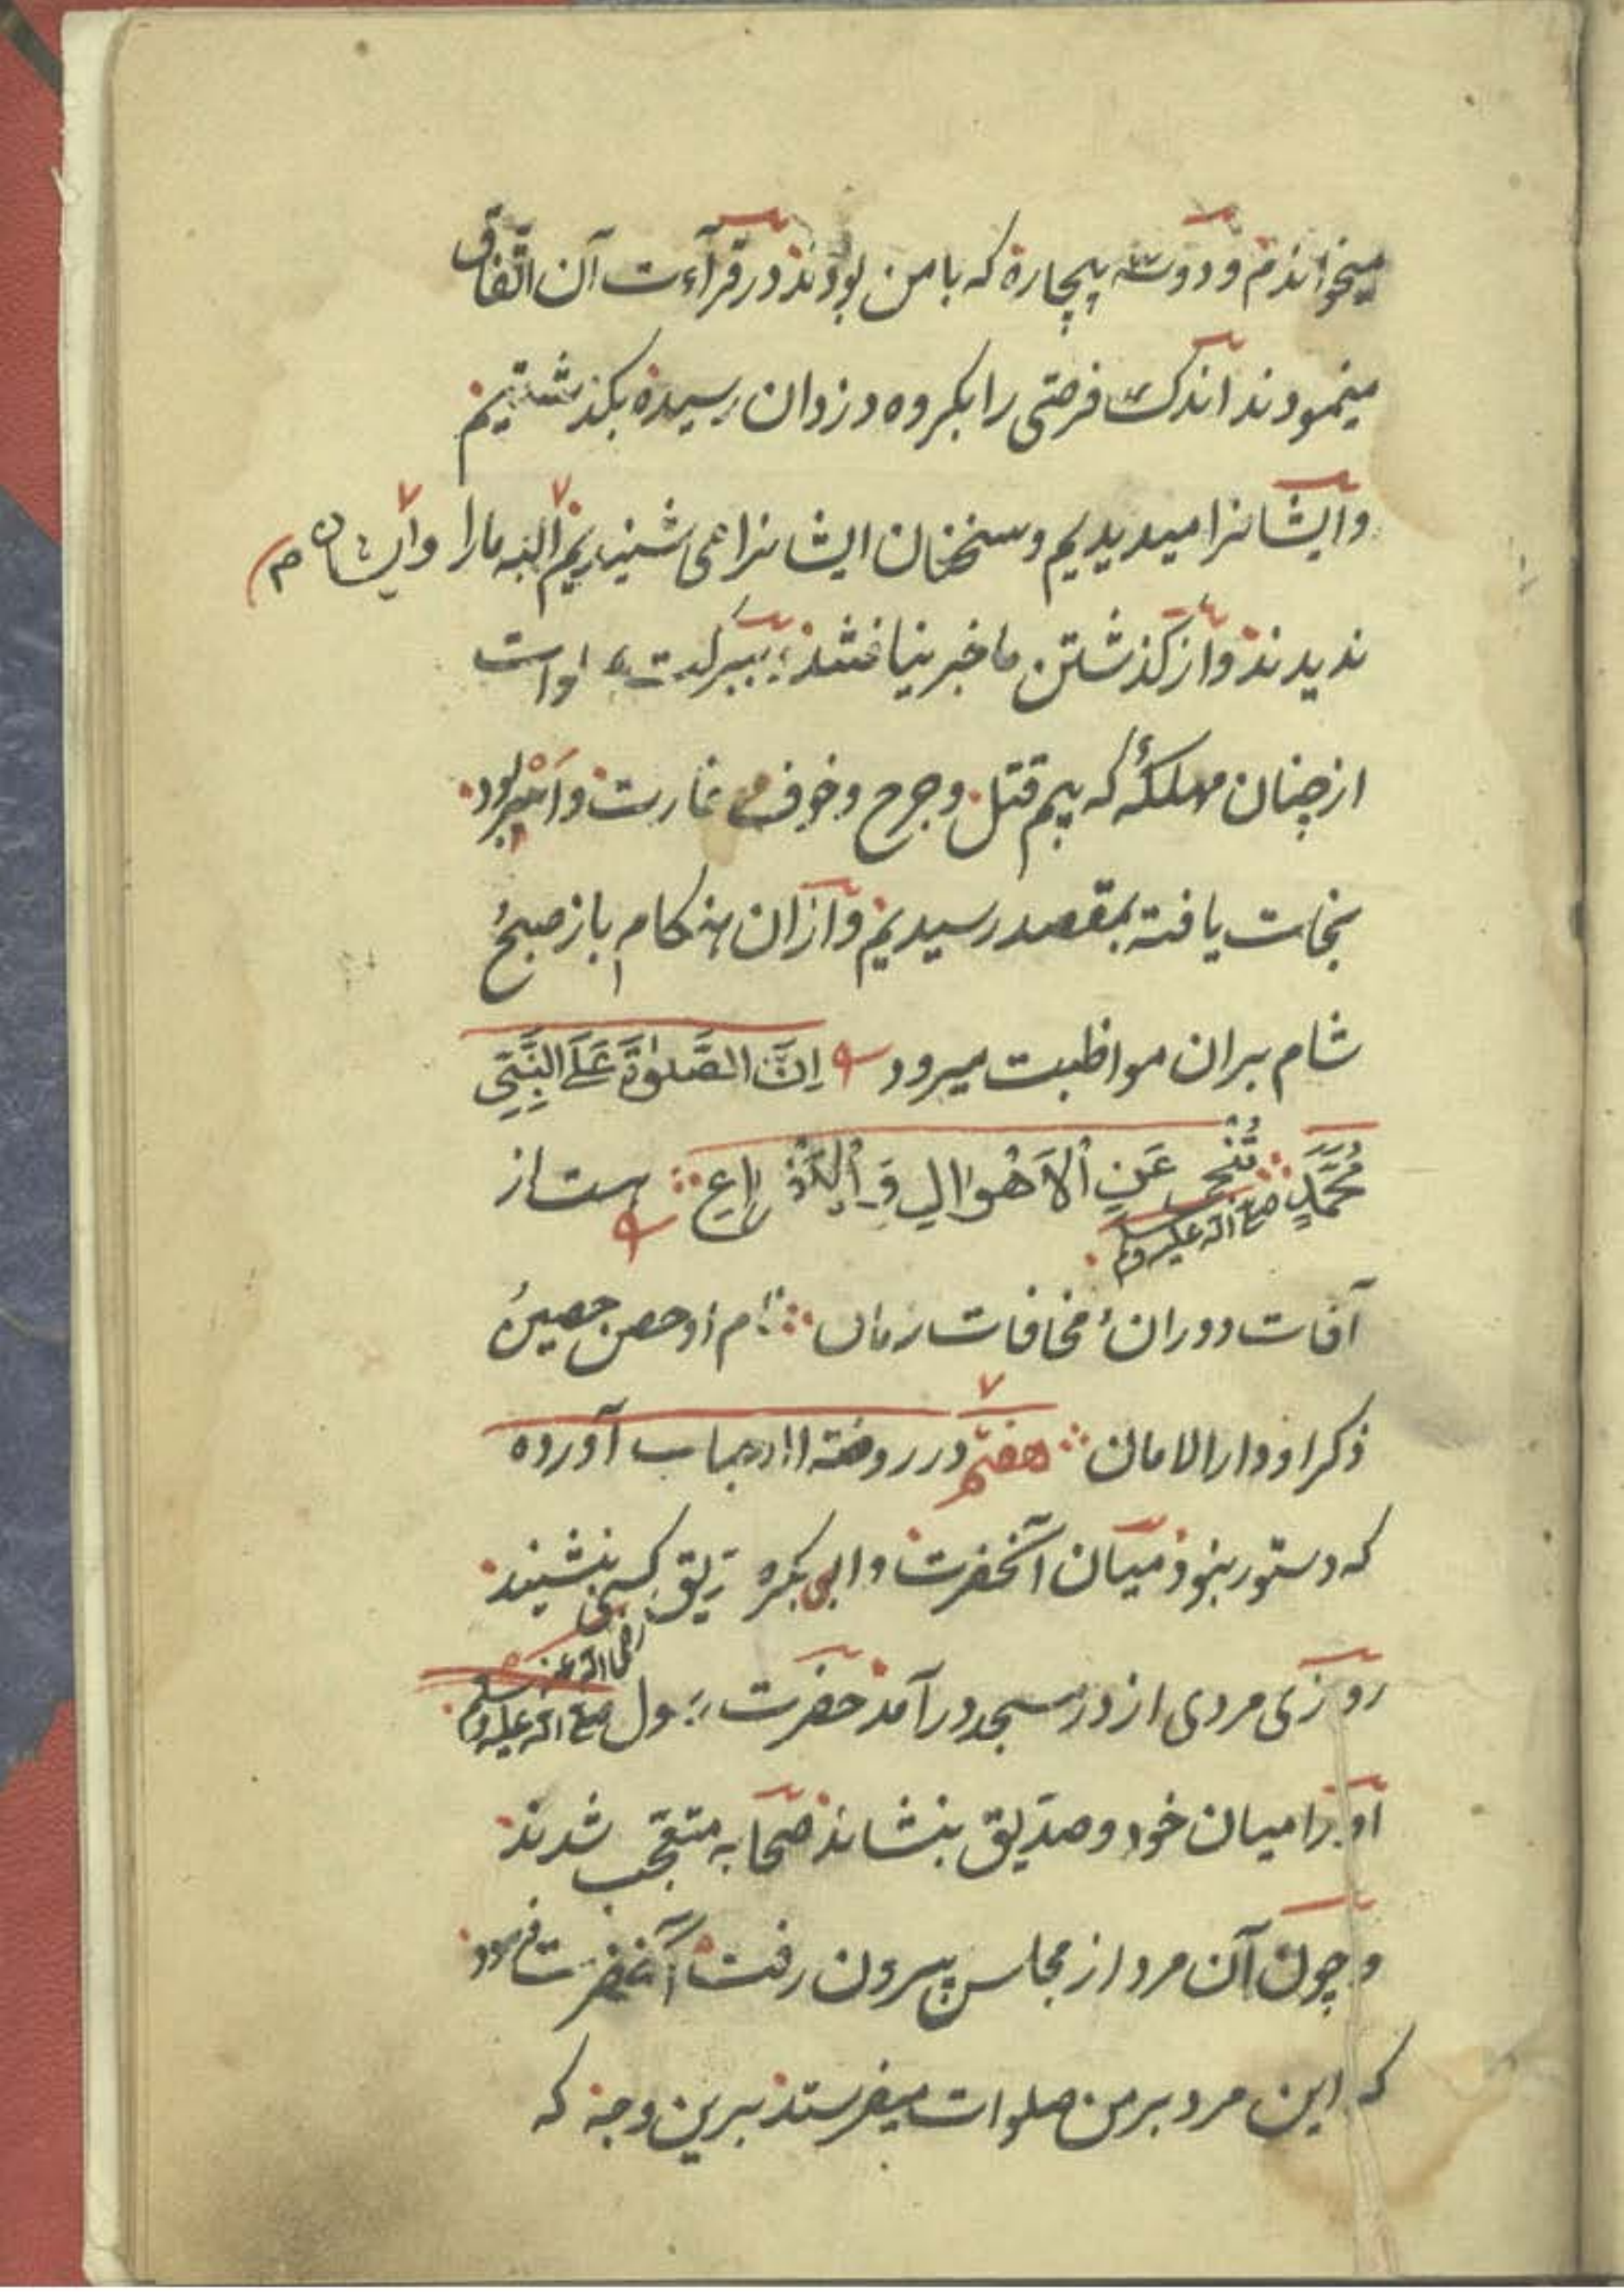 میخواندم و دو سه بیچاره که با من بودند در قرآءت آن اتّفاق
مینمودند اندک فرصتی را بکروه دزدان رسیده بکذشتیم
و ایشانرا میدیدیم و سخنان ایشانرا می شنیدیم البته مارا و ایشان
ندیدند و از کذشتن ما خبر نیافتند ببرکت صلوات
از چنان مهلکهٔ که بیم قتل و جرح و خوف غارت و اسر بود
نجات یافته بمقصد رسیدیم و ازان هنکام باز صبح
شام بران مواظبت میرود اِنَّ الصَّلوٰةَ عَلَی النَّبِیِّ
مُحَمَّدٍ صلی الله علیه وسلم تُنْجِی عَنِ الْاَهْوَالِ وَ هست از
آفات دوران مخافات زمان نام او حصن حصین
ذکر او دار الامان هفتم در روضة الاحباب آورده
که دستور نبود میان آنحضرت و ابی بکر صدیق کسی بنشیند
رضی الله عنه
روزی مردی از در مسجد درآمد حضرت رسول صلی الله علیه وسلم
او را میان خود و صدّیق بنشاند صحابه متعجّب شدند
و چون آن مرد از مجلس بیرون رفت آنحضرت فرمود
که این مرد بر من صلوات میفرستد برین وجه که